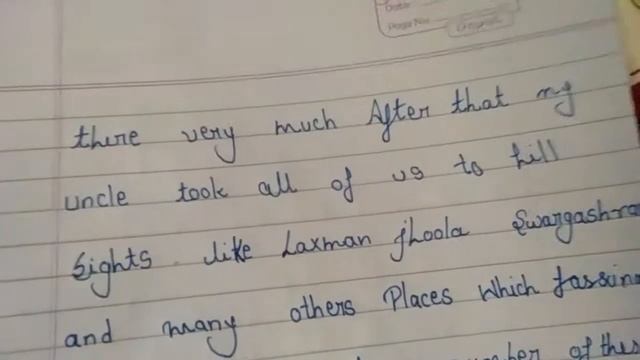 Date
Page No
there very much After that my
uncle took all of us to hill
Sights like Laxman jhoola Swargashra
and many others Places which fassin
of this